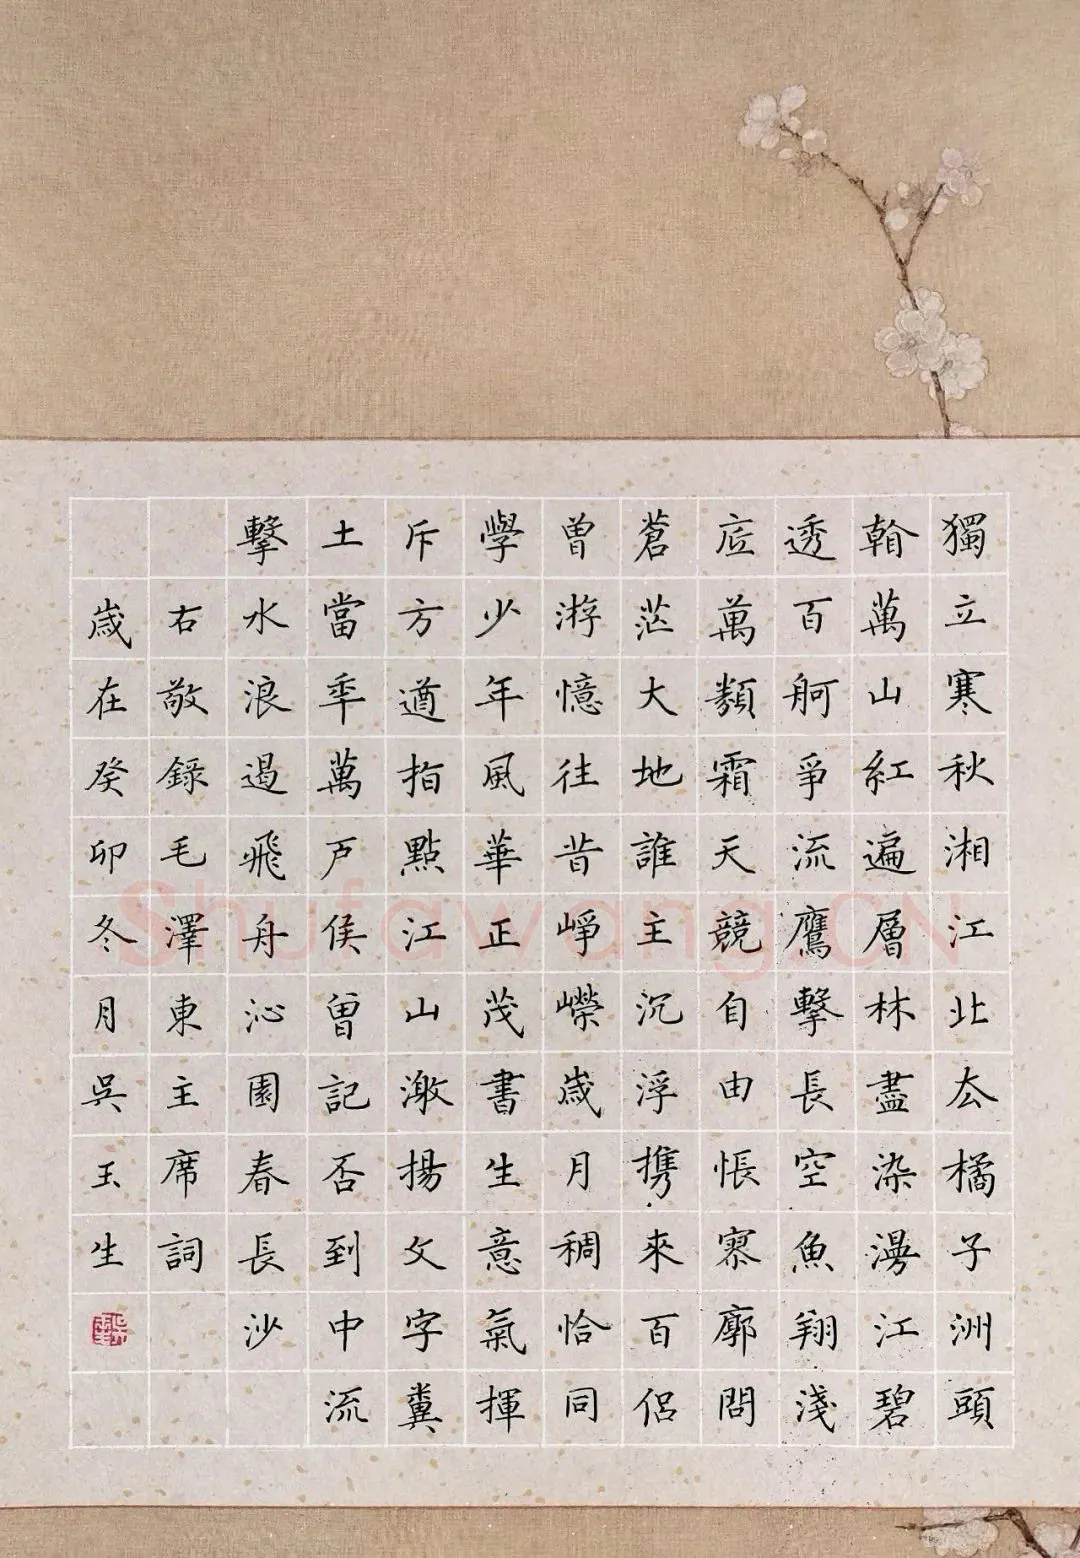 獨立寒秋湘江北去橘子洲頭
看萬山紅遍層林盡染漫江碧
透百舸爭流鷹擊長空魚翔淺
底萬類霜天競自由悵寥廓問
蒼茫大地誰主沉浮携來百侣
曾游憶往昔崢嶸歲月稠恰同
學少年風華正茂書生意氣揮
斥方遒指點江山激揚文字糞
土當年萬戶侯曾記否到中流
擊水浪遏飛舟沁園春長沙
右敬錄毛澤東主席詞
歲在癸卯冬月吳玉生
Shufawang.CN